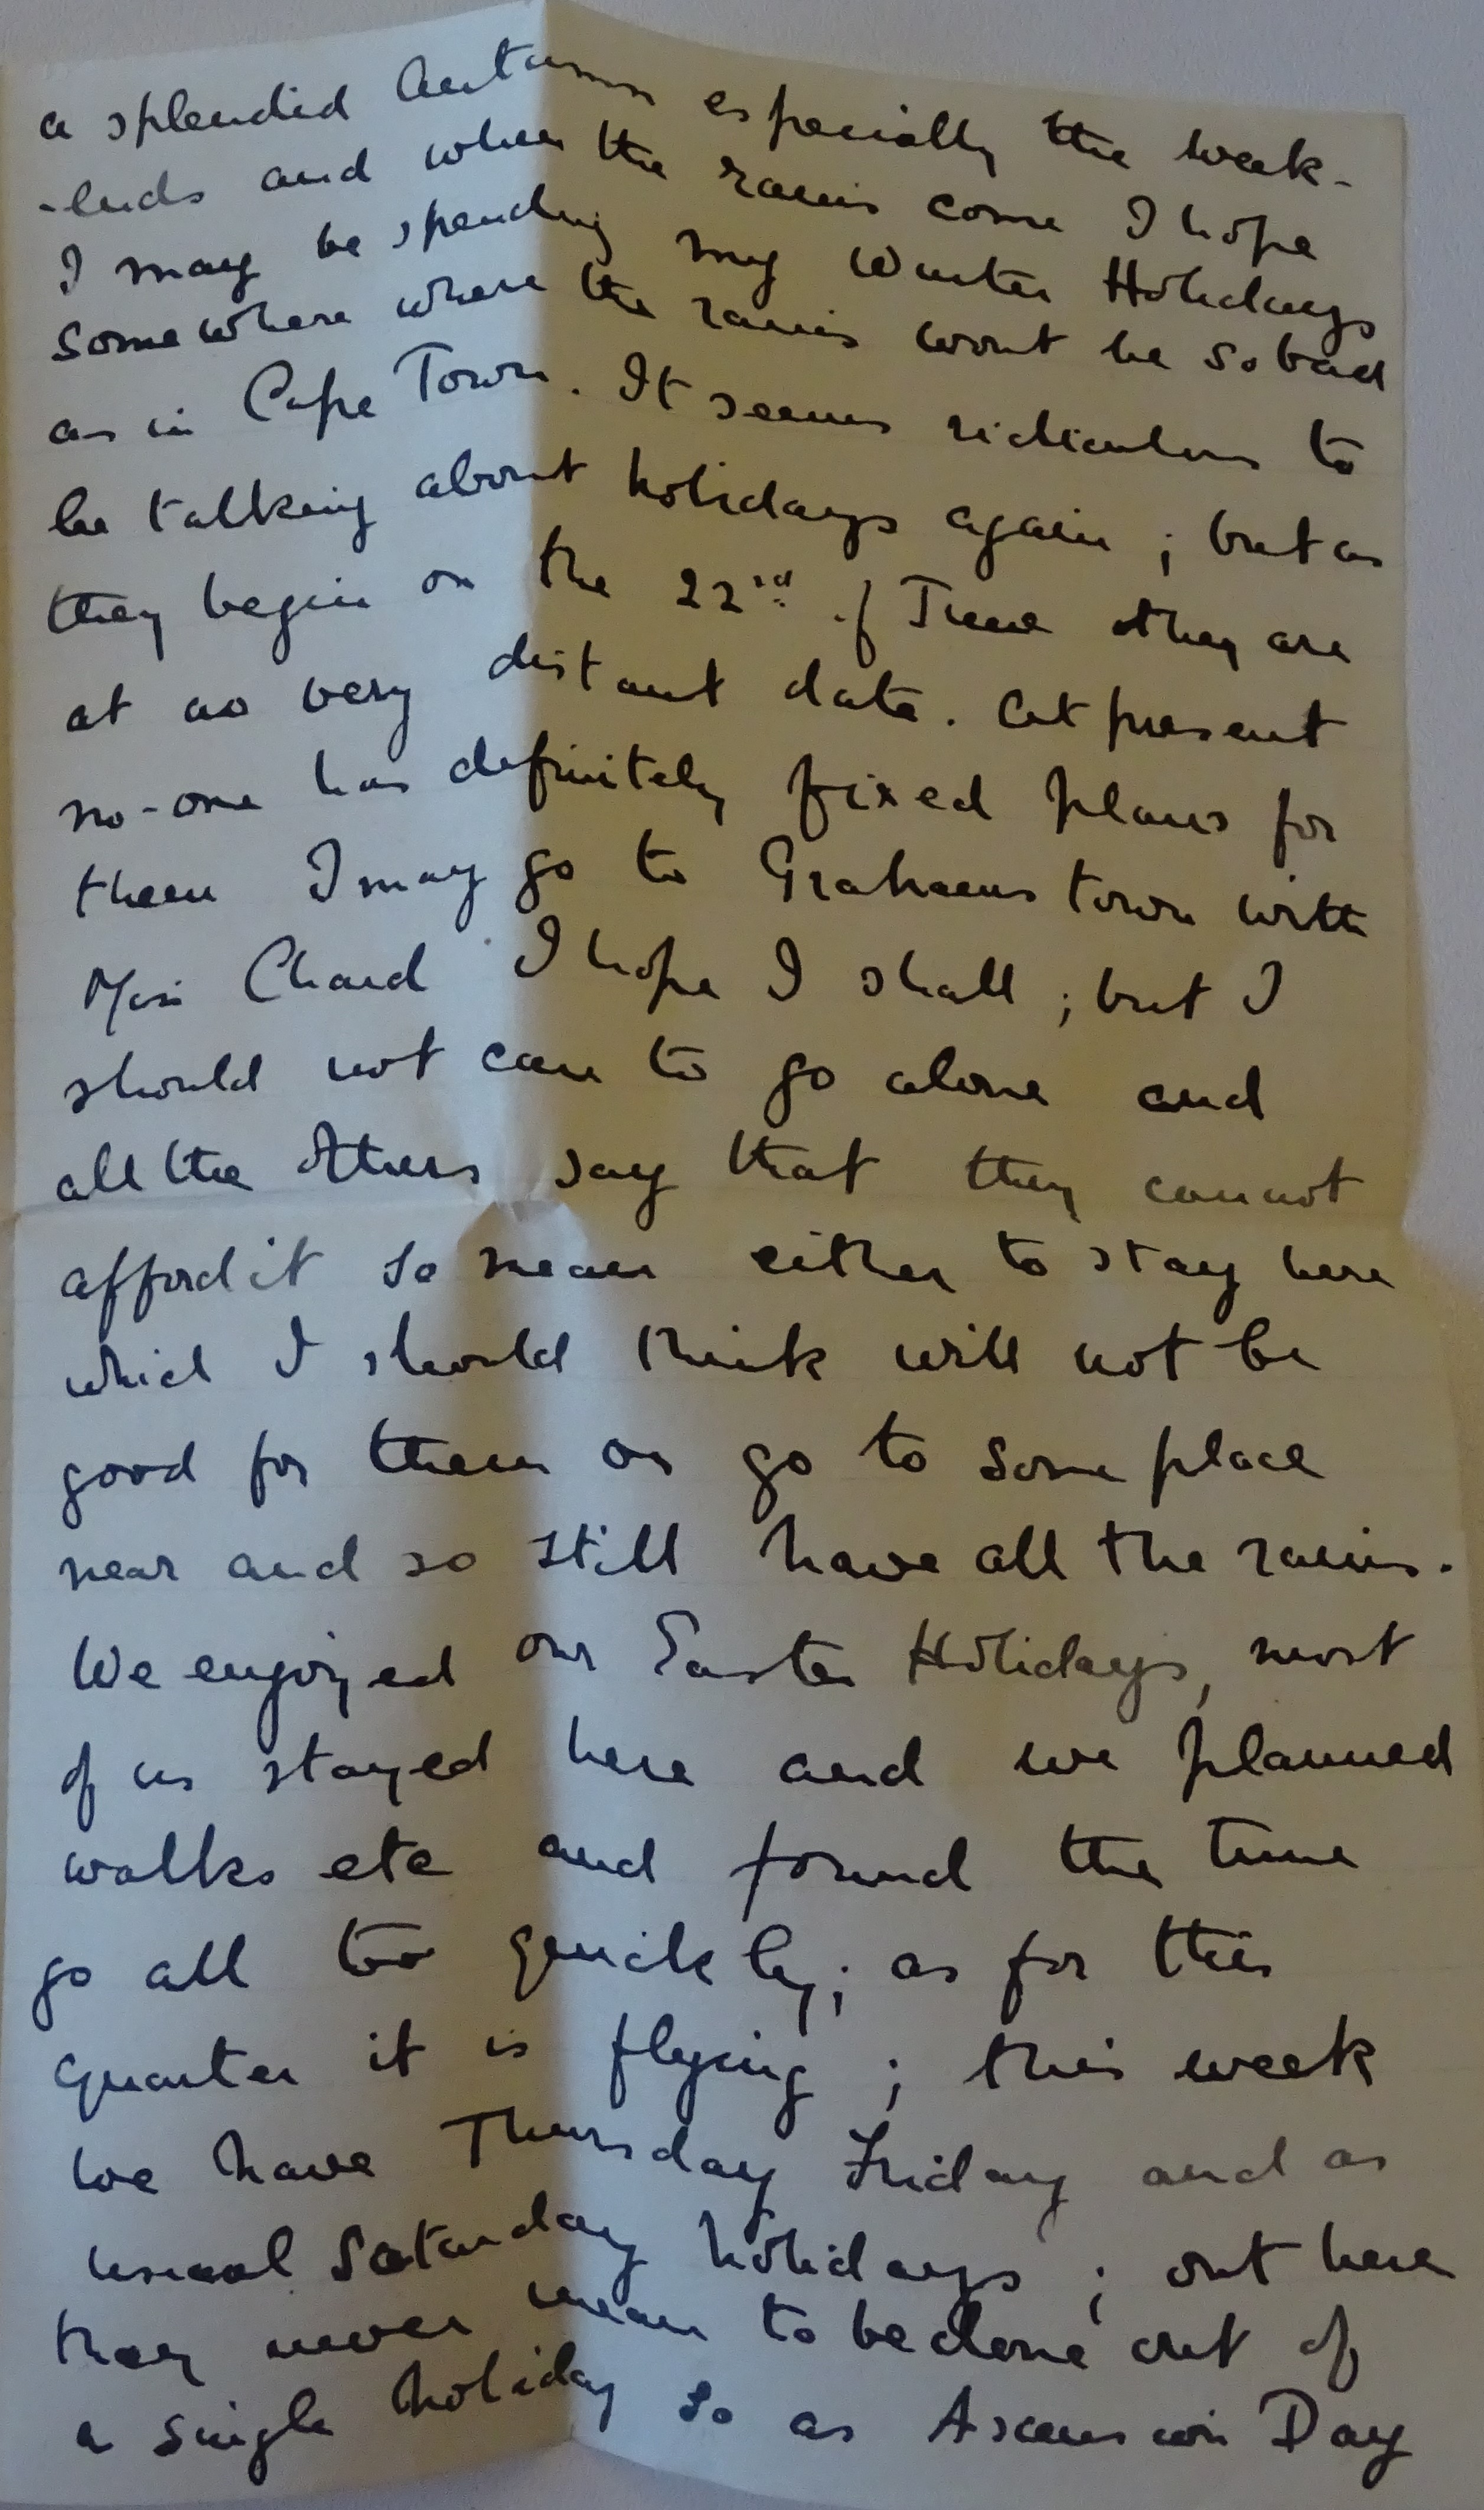 a splendid Autumn especially the week-
-ends and when the rains come I hope
I may be spending my Winter Holidays
somewhere where the rains wont be so bad
as in Cape Town. It seems ridiculous to
be talking about holidays again; but as
they begin on the 22nd of June they are
at no very distant date. At present
no-one has definitely fixed plans for
them I may go to Grahamstown with
Miss Chard I hope I shall; but I
should not care to go alone and
all the others say that they cannot
afford it so mean either to stay here
which I should think will not be
good for them or go to some place
near and so still have all the rains.
We enjoyed our Easter Holidays, most
of us stayed here and we planned
walks etc and found the time
go all too quickly; as for this
quarter it is flying; this week
we have Thursday Friday and as
usual Saturday holidays; out here
they never mean to be done out of
a single holiday so as Ascension Day